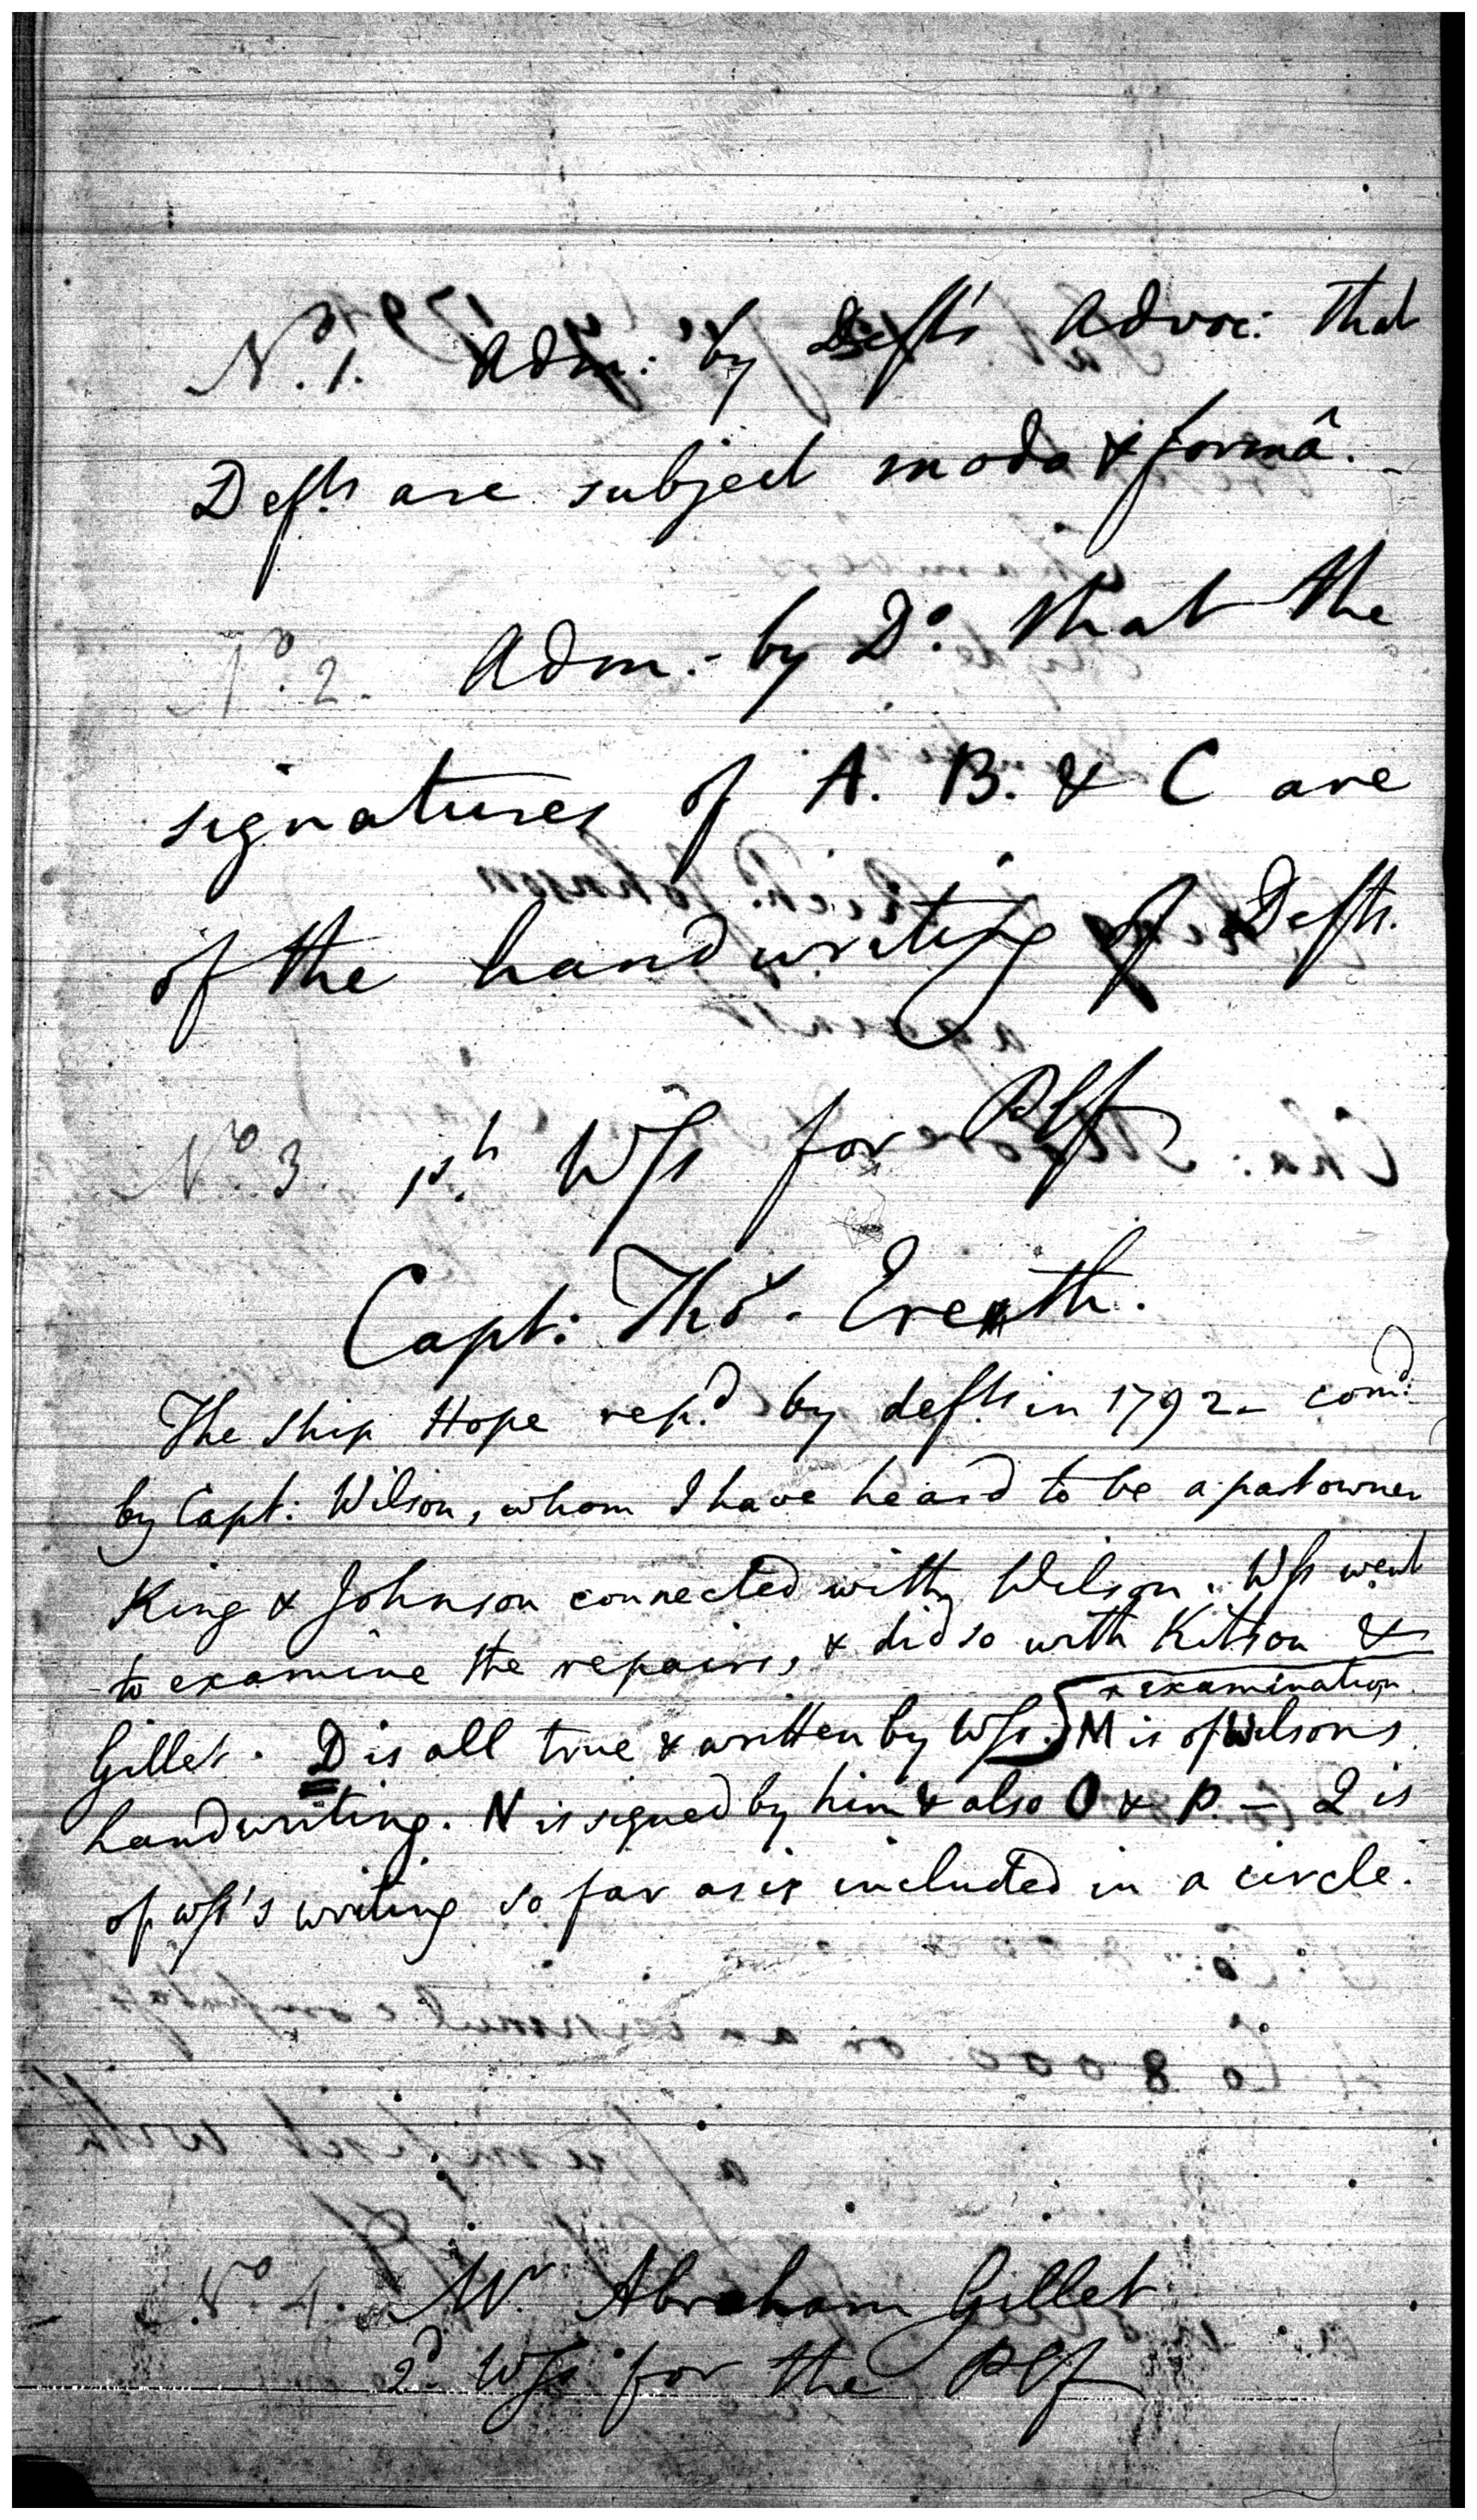 No. 1. Adm: by Defts Advoc: that
Defts are subject modo & formâ.
No. 2. Adm:- by Do. that the
signatures of A. B. & C are
of the handwriting of Defts.
No. 3. 1st. Wss for Plf
Capt: Thos.
The Ship Hope rep.d by defts in 1792 - com.d
by Capt: Wilson, whom I have heard to be a part owner
King & Johnson connected with Wilson. Wss went
to examine the repairs, & did so with Kitson &
Gillet. D is all true & written by Wss. x examination
M is of Wilsons
handwriting. N is signed by him & also O & P. - Q is
of wss's writing so far as is included in a circle.
No. 4. Mr. Abraham Gillet
2d. Wss for the Plf